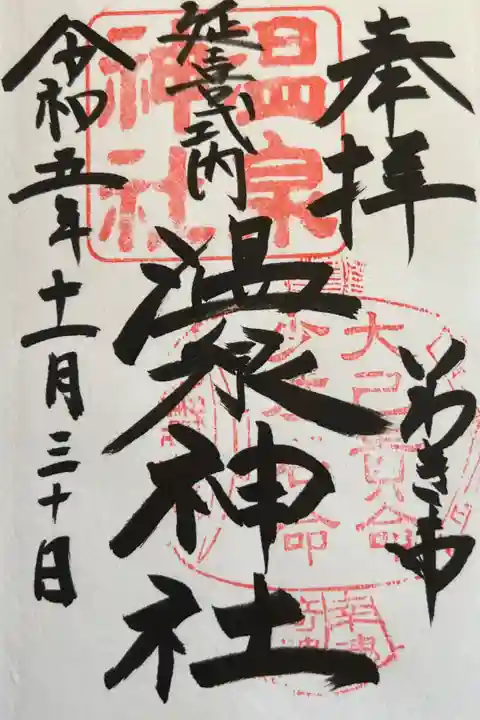 奉拝
いわき市
延喜式内
温泉神社
令和五年十一月三十日
温泉
神社
大己貴命
少彦名命